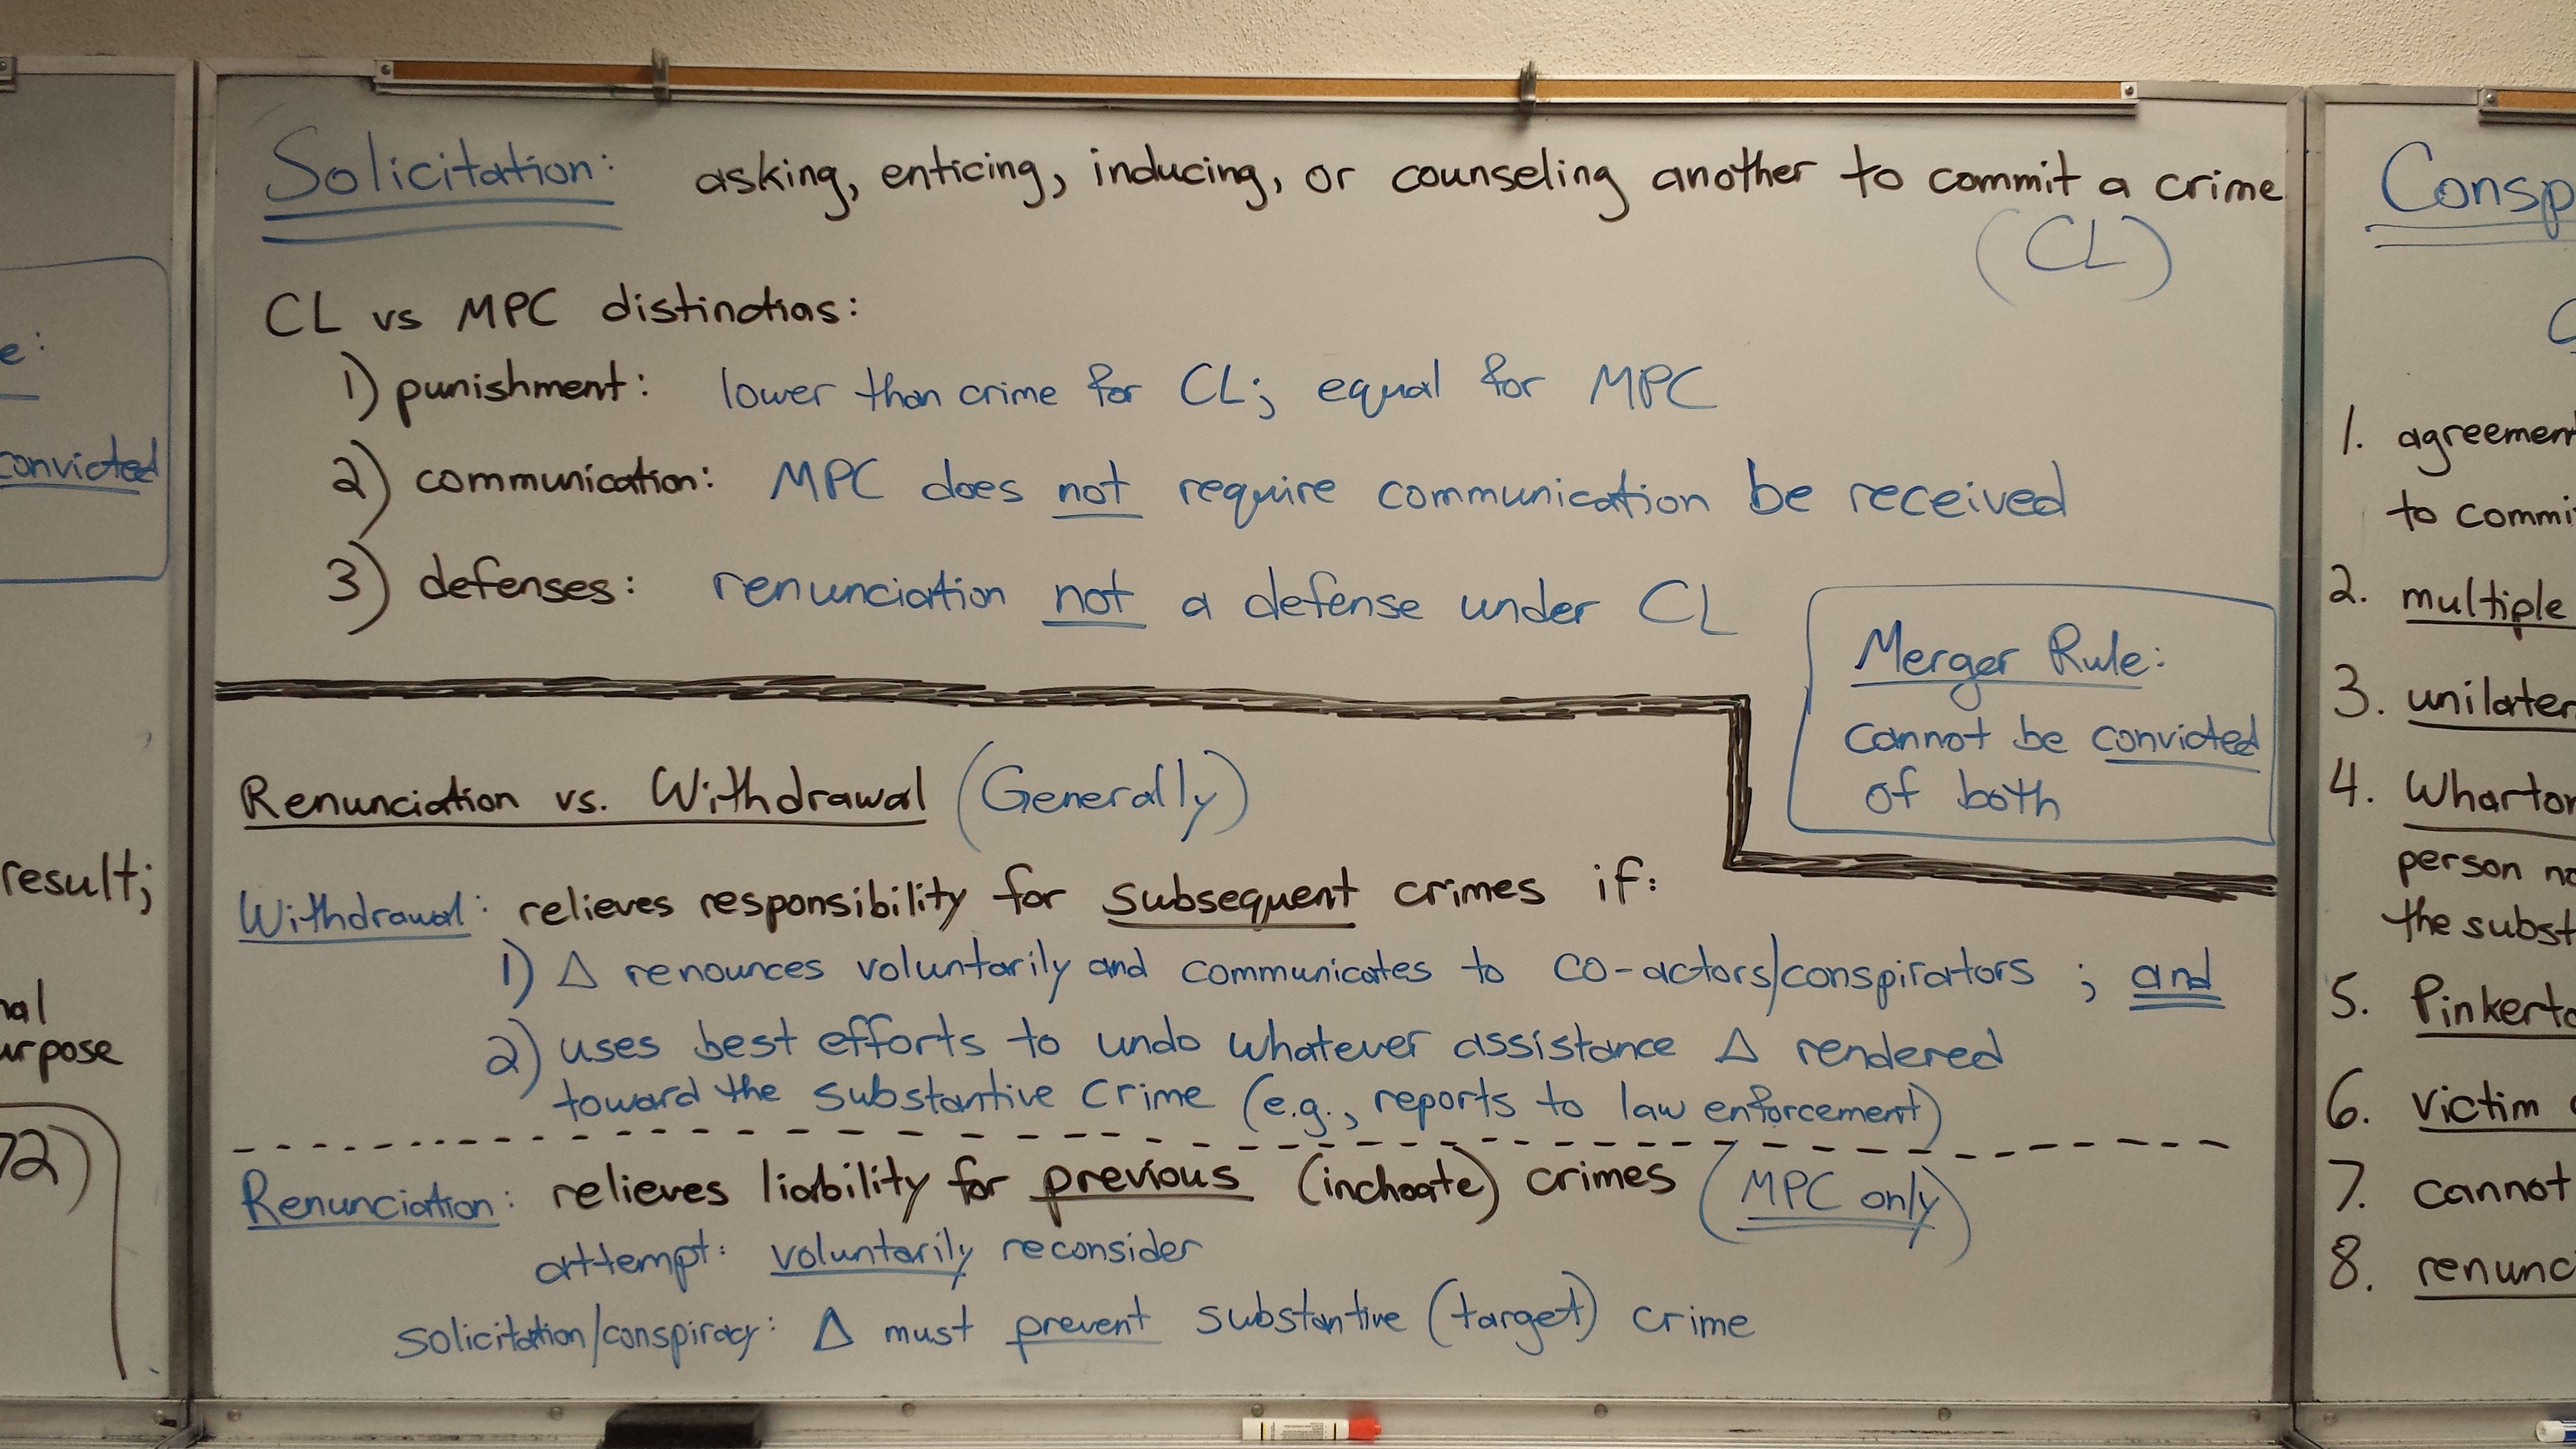 e:
convicted
result;
nal
urpose
72)
Solicitation: asking, enticing, inducing, or counseling another to commit a crime
(CL)
CL vs MPC distinctias:
1) punishment: lower than crime for CL; equal for MPC
2) communication: MPC does not require communication be received
3) defenses: renunciation not a defense under CL
Merger Rule:
cannot be convicted
of both
Renunciation vs. Withdrawal (Generally)
Withdrawal: relieves responsibility for subsequent crimes if:
1) Δ renounces voluntarily and communicates to co-actors/conspirators ; and
2) uses best efforts to undo whatever assistance Δ rendered
toward the substantive crime (e.g., reports to law enforcement)
Renunciation: relieves liability for previous (inchoate) crimes (MPC only)
attempt: voluntarily reconsider
solicitation/conspiracy: Δ must prevent substantive (target) crime
Consp
1. agreemen
to commi
2. multiple
3. unilater
4. Wharton
person no
the subst
5. Pinkerto
6. victim
7. cannot
8. renunc